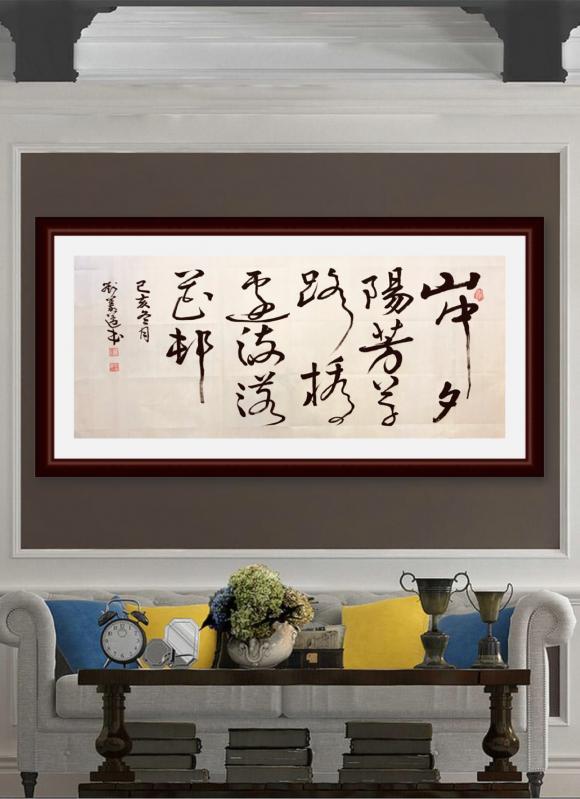 山中夕
陽芳草
路橋
邊流落
花邨
己亥冬月